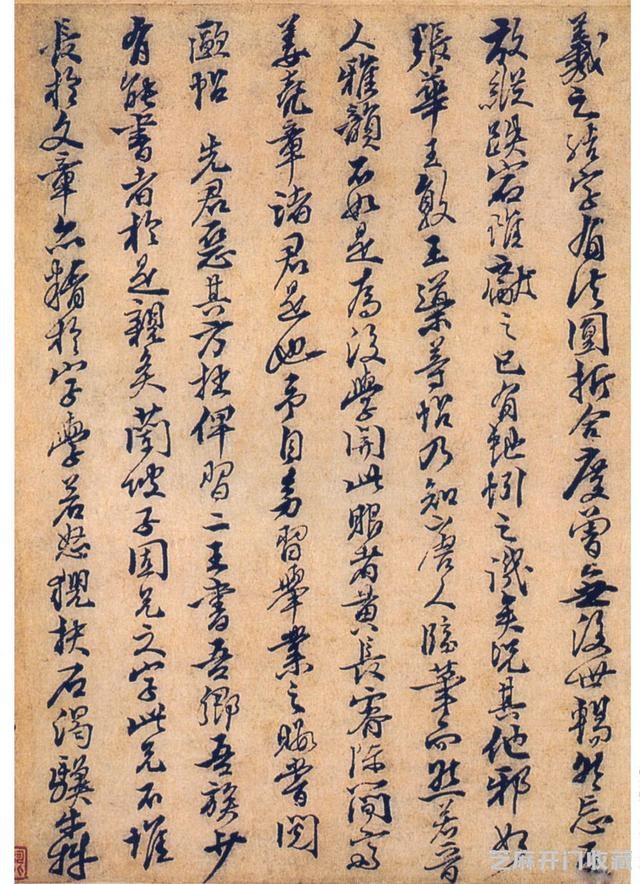 羲之結字有法圓折合度曾無後世忘
放縱跌宕雖獻之已有蚓之譏矣況其他邪如
張華王敦王導等帖乃知唐人臨若晉
人雅韻不如是為後學開此眼者黃長睿陳簡齋
姜堯章諸君是也予自幼習舉業之暇嘗閱
歐帖 先君惡其方拙俾習二王書吾鄉吾族少
有能書者於是親炙蘭坡子固兄文字此兄不惟
長於文章亦精於字學若怒猊抉石渴驥奔
芝麻开门收藏